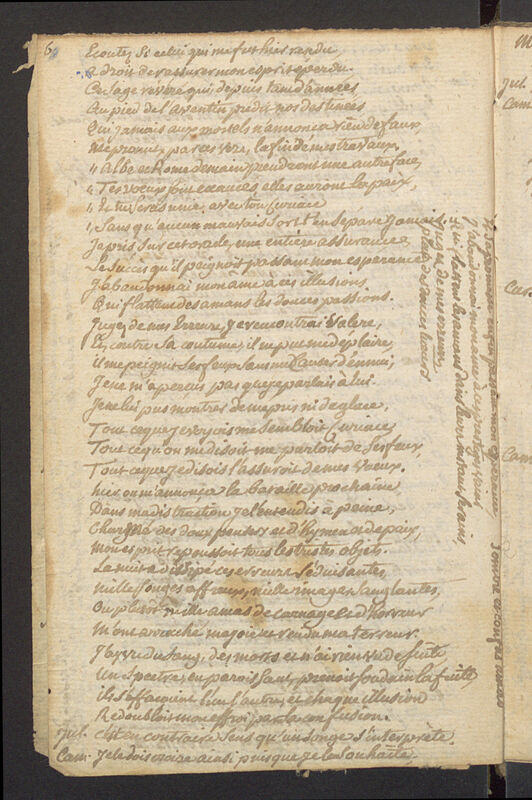 6
Ecoutez si celui qui me fut hier rendu
a droit de rassurer mon esprit eperdu.
Ce sage revéré qui depuis tant d'années
Au pied de l'aventin predit nos destinées
Qui jamais aux mortels n'annonça rien de faux
M'a promis, par ces vers, la fin de mes travaux,
" Albe et Rome demain prendront une autre face,
" Tes voeux sont exaucés, elles auront la paix,
" Et tu seras unie avec ton Curiace
" Sans qu'aucun mauvais sort t'en separe jamais.
Je pris sur cet oracle, une entiere assurance,
Le succès qu'il peignoit passant mon esperance
J'abandonnai mon ame a ces illusions
Qui flattent des amans les douces passions.
Jugez de mon Erreur, je rencontrai Valere,
Et, contre sa coutume, il ne put me deplaire,
il me peignit ses feux sans me causer d'ennui,
Je ne m'aperçus pas que je parlais à lui.
Je ne lui pus montrer de mepris ni de glace,
Tout ce que je voyois me sembloit Curiace,
Tout ce qu'on me disoit me parloit de ses feux,
Tout ce que je disois l'assuroit de mes voeux.
hier on m'annonça la bataille prochaine
Dans ma distraction je l'entendis à peine,
Charmée des doux pensers et d'hymen et de paix,
mon esprit repoussoit tous les tristes objets.
La nuit a dissipé ces erreurs seduisantes,
mille songes affreux, mille images sanglantes,
Ou plutot mille amas de carnage et d'horreur
M'ont arraché ma joie et rendu ma terreur.
J'ai vu du sang, des morts et n'ai rien vu de suite
Un spectre, en paroissant, prenoit soudain la fuite,
ils s'effacoient l'un l'autre, et chaque illusion
Redoubloit mon effroi par la confusion.
Jul. C'est en contraire sens qu'un songe s'interprète.
Cam. Je le dois croire ainsi puisque je le souhaite.
mon esperance
J'abandonnai mon ame à
Jugez de mon erreur
M
Jul.
Cam
Cam